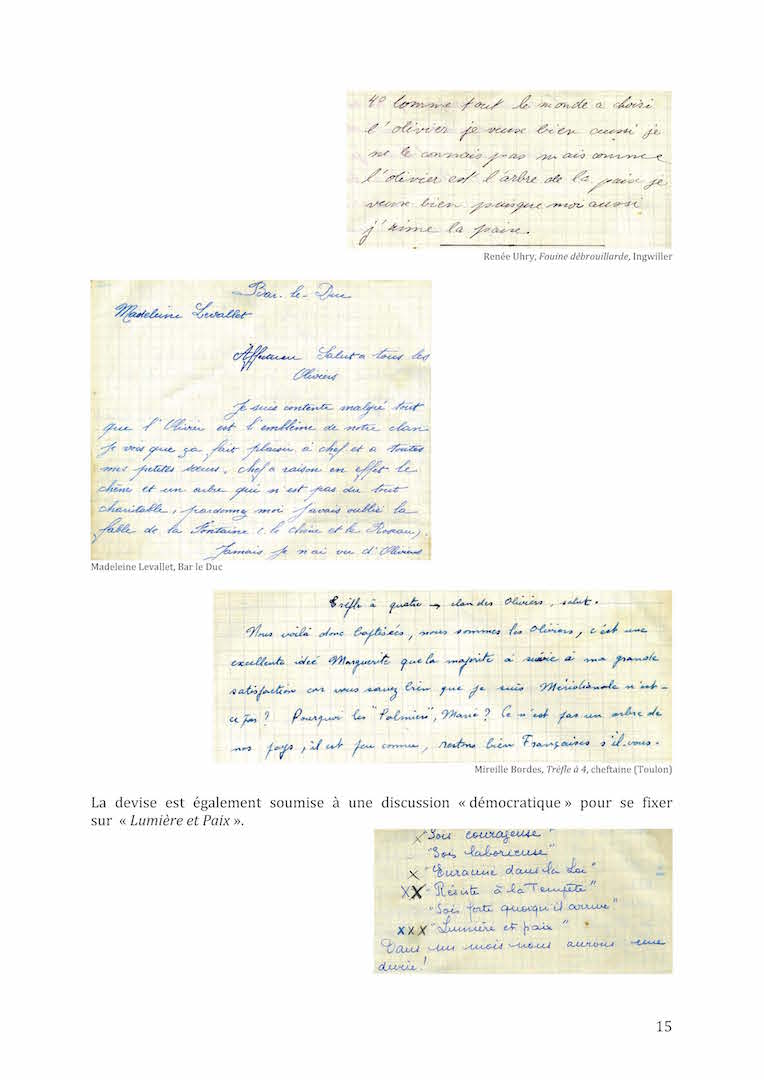 4° Comme tout le monde a choisi
l'olivier je veux bien aussi je
ne le connais pas mais comme
l'olivier est l'arbre de la paix je
veux bien puisque moi aussi
j'aime la paix.
Renée Uhry, Fouine débrouillarde, Ingwiller
Bar-le-Duc
Madeleine Levallet
Affection Salut a tous les
Oliviers
Je suis contente malgré tout
que l'Olivier est l'emblème de notre clan
Je vois que ça fait plaisir à chef et a toutes
mes petites sœurs. Chef a raison en effet le
chêne et un arbre qui n'est pas du tout
charitable, pardonnez moi j'avais oublié la
fable de la Fontaine (le chêne et le Roseau).
Jamais je n'ai vu d'Oliviers
Madeleine Levallet, Bar le Duc
Trèfle à quatre → clan des Oliviers, salut.
Nous voilà donc baptisées, nous sommes les Oliviers, c'est une
excellente idée Marguerite que la majorité a suivie à ma grande
satisfaction car vous savez bien que je suis Méridionale n'est-
ce pas ? Pourquoi les "Palmiers", Marie ? Ce n'est pas un arbre de
nos pays, il est peu connu, restons bien Françaises s'il-vous.
Mireille Bordes, Trèfle à 4, cheftaine (Toulon)
La devise est également soumise à une discussion « démocratique » pour se fixer
sur « Lumière et Paix ».
x "Sois courageuse"
"Sois laborieuse"
x "Euraciné dans la Loi"
xx "Résiste à la Tempête"
"Sois forte quoiqu'il arrive"
xxx "Lumière et paix"
Dans un mois nous aurons une
devise !
15